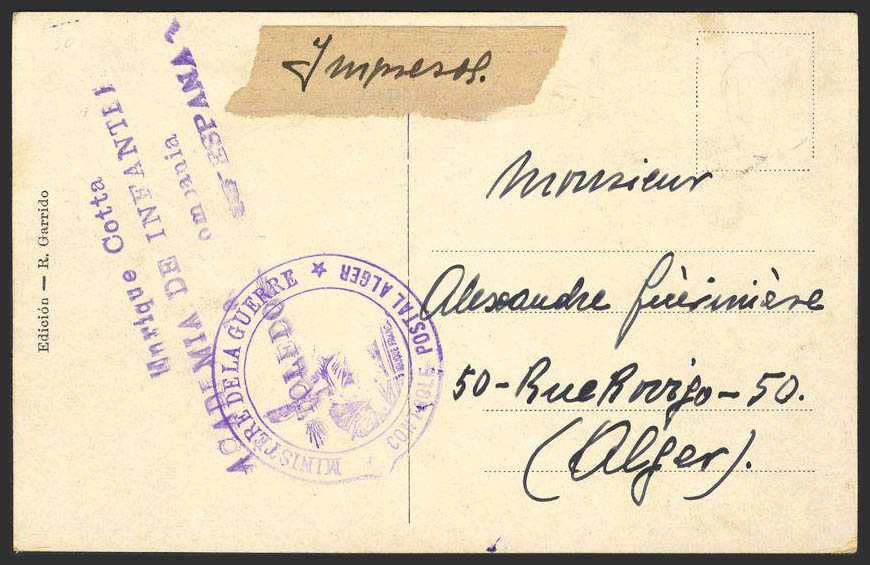 Impresos.
Monsieur
Alexandre Guérinière
50-Rue Rovigo-50.
(Alger).
Edición — R. Garrido
Enrique Cotta
ACADEMIA DE INFANTE
ompania
TOLEDO
ESPAÑA
MINISTERE DE LA GUERRE ★ CONTROLE POSTAL ALGER